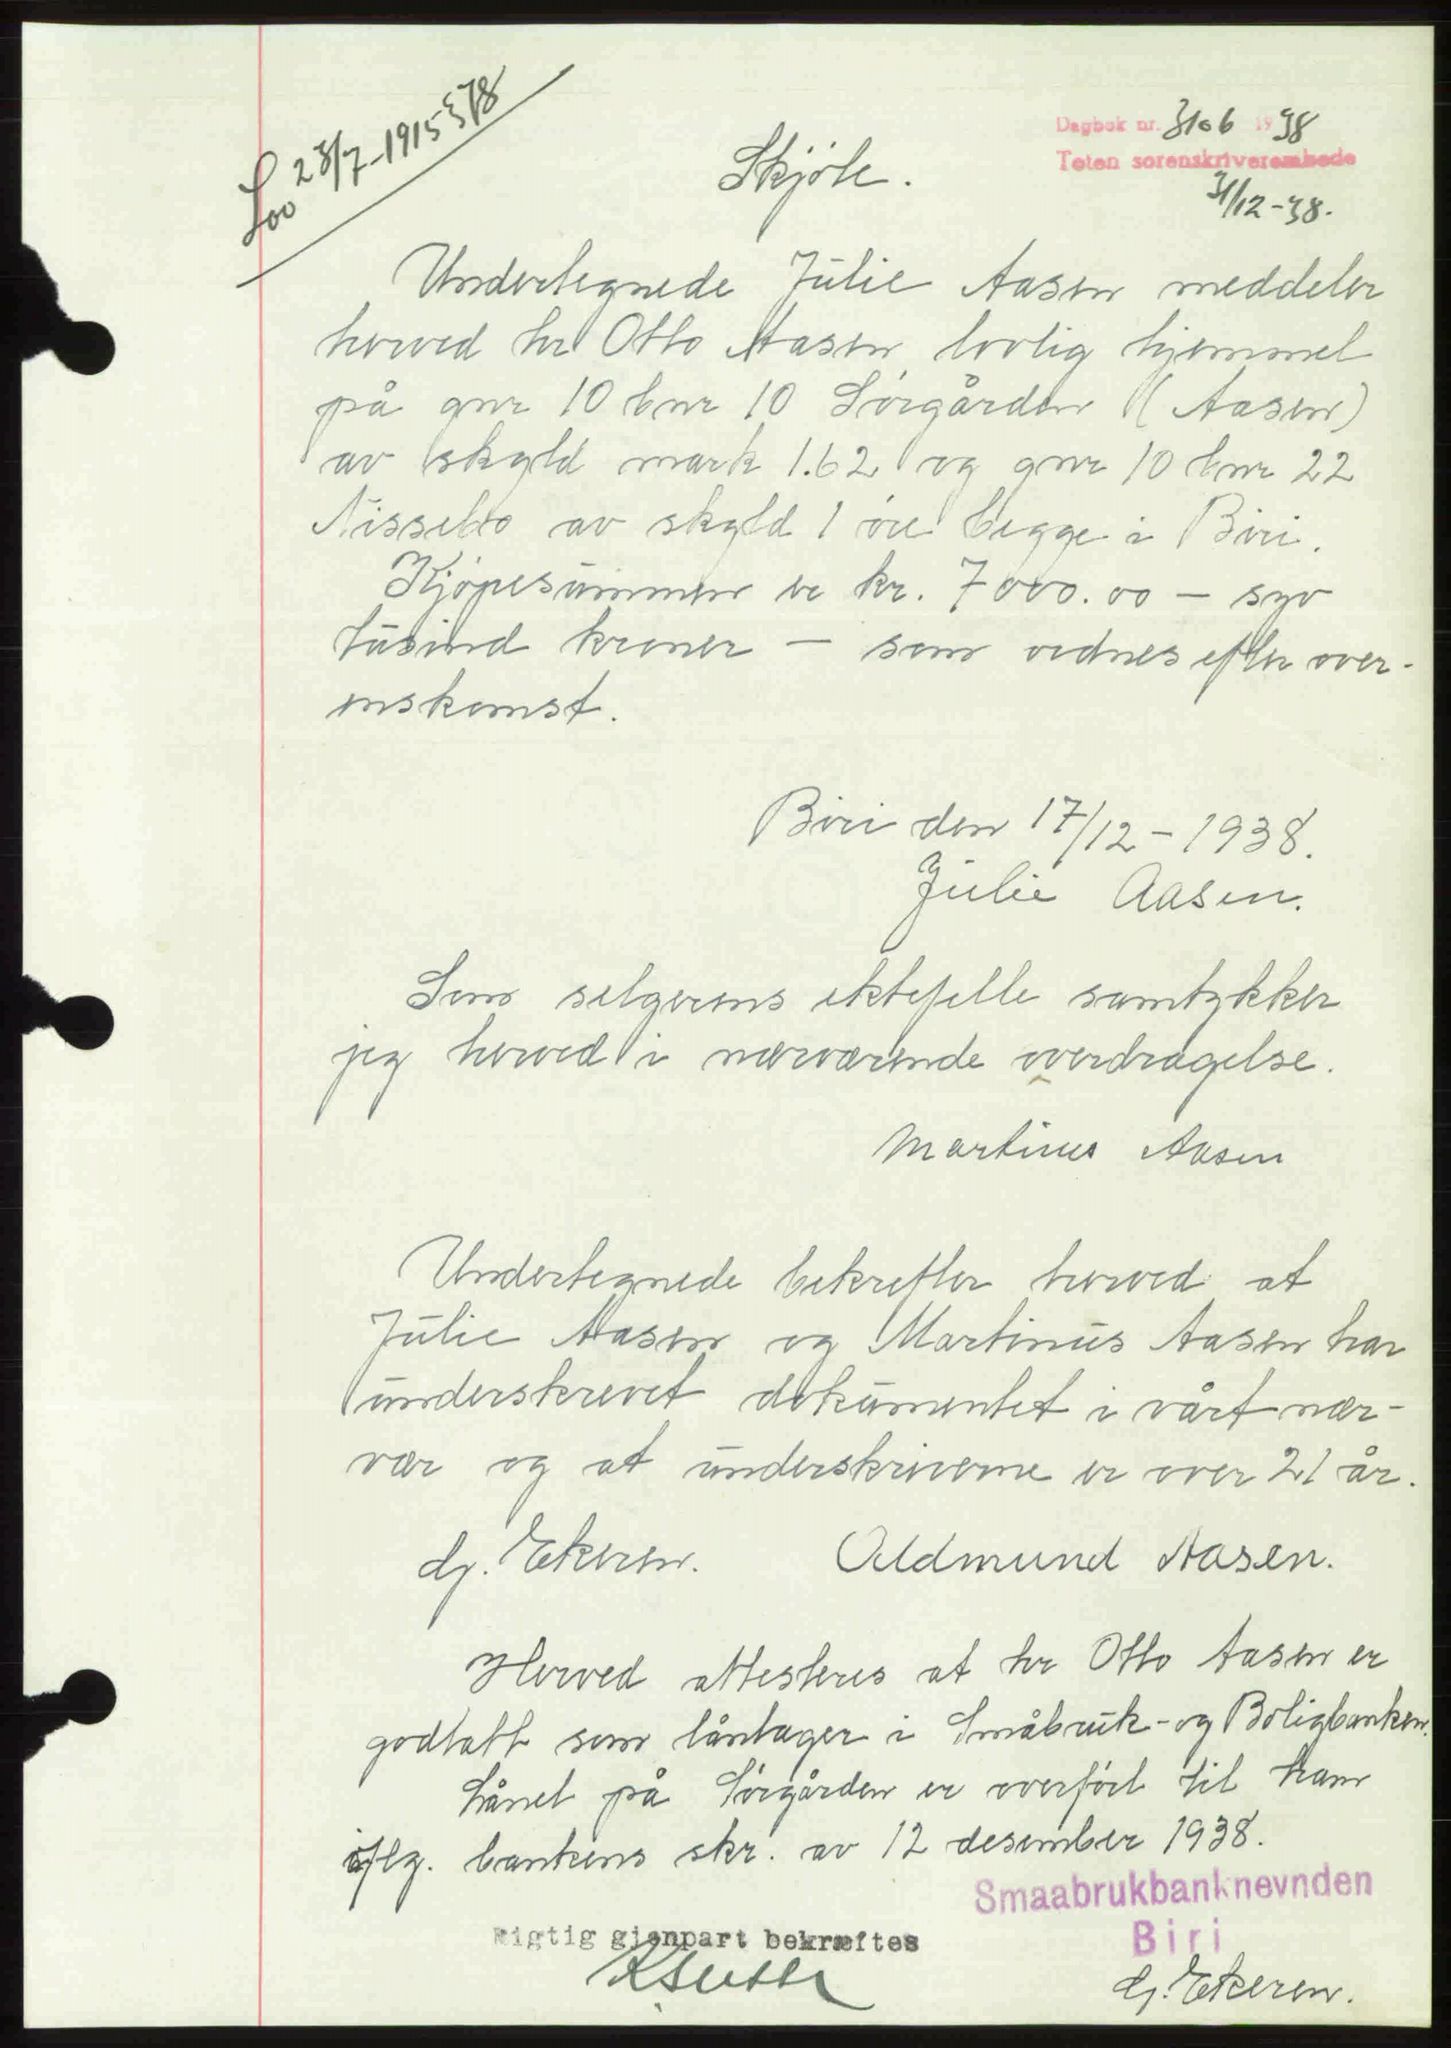 23/7-1915 378
Dagbok nr. 3106 1938
Toten sorenskriverembede
31/12-38.
Skjöte.
Undertegnede Julie Aasen meddeler
herved hr Otto Aasen lovlig hjemmel
på gnr 10 bnr 10 Sörgården (Aasen)
av skyld mark 1.62 og gnr 10 bnr 22
Nissebo av skyld 1 öre begge i Biri.
Kjöpesummen er kr. 7000.00 - syv
tusind kroner - som ordnes efter over-
enskomst.
Biri den 17/12-1938.
Julie Aasen.
Som selgerens ektefelle samtykker
jeg herved i nærværende overdragelse.
Martinus Aasen
Undertegnede bekrefter herved at
Julie Aasen og Martinus Aasen har
underskrevet dokumentet i vårt nær-
vær og at underskriverne er over 21 år.
Ekeren. Oldmund Aasen.
Herved attesteres at hr Otto Aasen er
godtatt som låntager i Småbruk- og Boligbanken.
Lånet på Sörgården er overfört til ham
iflg. bankens skr. av 12 desember 1938.
Smaabrukbanknevnden
Rigtig gjenpart bekræftes
Biri
Ekeren.